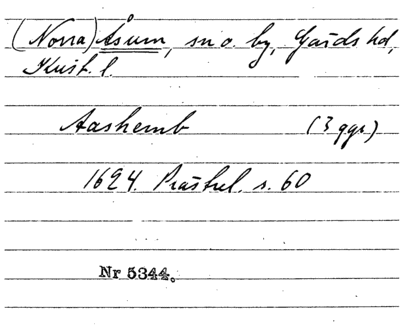 (Norra) Åsum, sn o. by, Gärds hd,
Krist. l.
Aashemb (3 ggr)
1624. Prästrel. s. 60
Nr 5344.